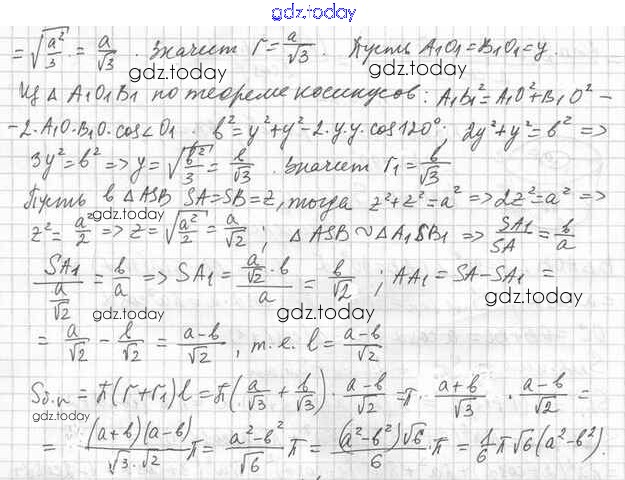 gdz.today
= √(a²/3) = a/√3 . Значит r = a/√3 . Пусть A₁O₁=B₁O₁=y.
gdz.today gdz.today
Из △ A₁O₁B₁ по теореме косинусов: A₁B₁²=A₁O²+B₁O²−
−2·A₁O·B₁O·cos∠O₁ . b²=y²+y²−2·y·y·cos120°; 2y²+y²=b² =>
3y²=b² => y=√(b²/3)=b/√3 . Значит r₁=b/√3
gdz.today
Пусть в △ASB SA=SB=z, тогда z²+z²=a² => 2z²=a² =>
gdz.today
z²=a²/2 => z=√(a²/2)=a/√2 ; △ASB∼△A₁SB₁ => SA₁/SA=b/a
gdz.today
SA₁/(a/√2)=b/a => SA₁=(a/√2·b)/a=b/√2 ; AA₁=SA−SA₁=
gdz.today gdz.today
= a/√2 − b/√2 = (a−b)/√2 , т.е. l=(a−b)/√2
gdz.today
Sб.п = π(r+r₁)l = π(a/√3+b/√3)·(a−b)/√2=π·(a+b)/√3·(a−b)/√2=
gdz.today gdz.today
= (a+b)(a−b)/(√3·√2) π = (a²−b²)/√6 π = (a²−b²)√6/6 ·π = 1/6 π√6(a²−b²).